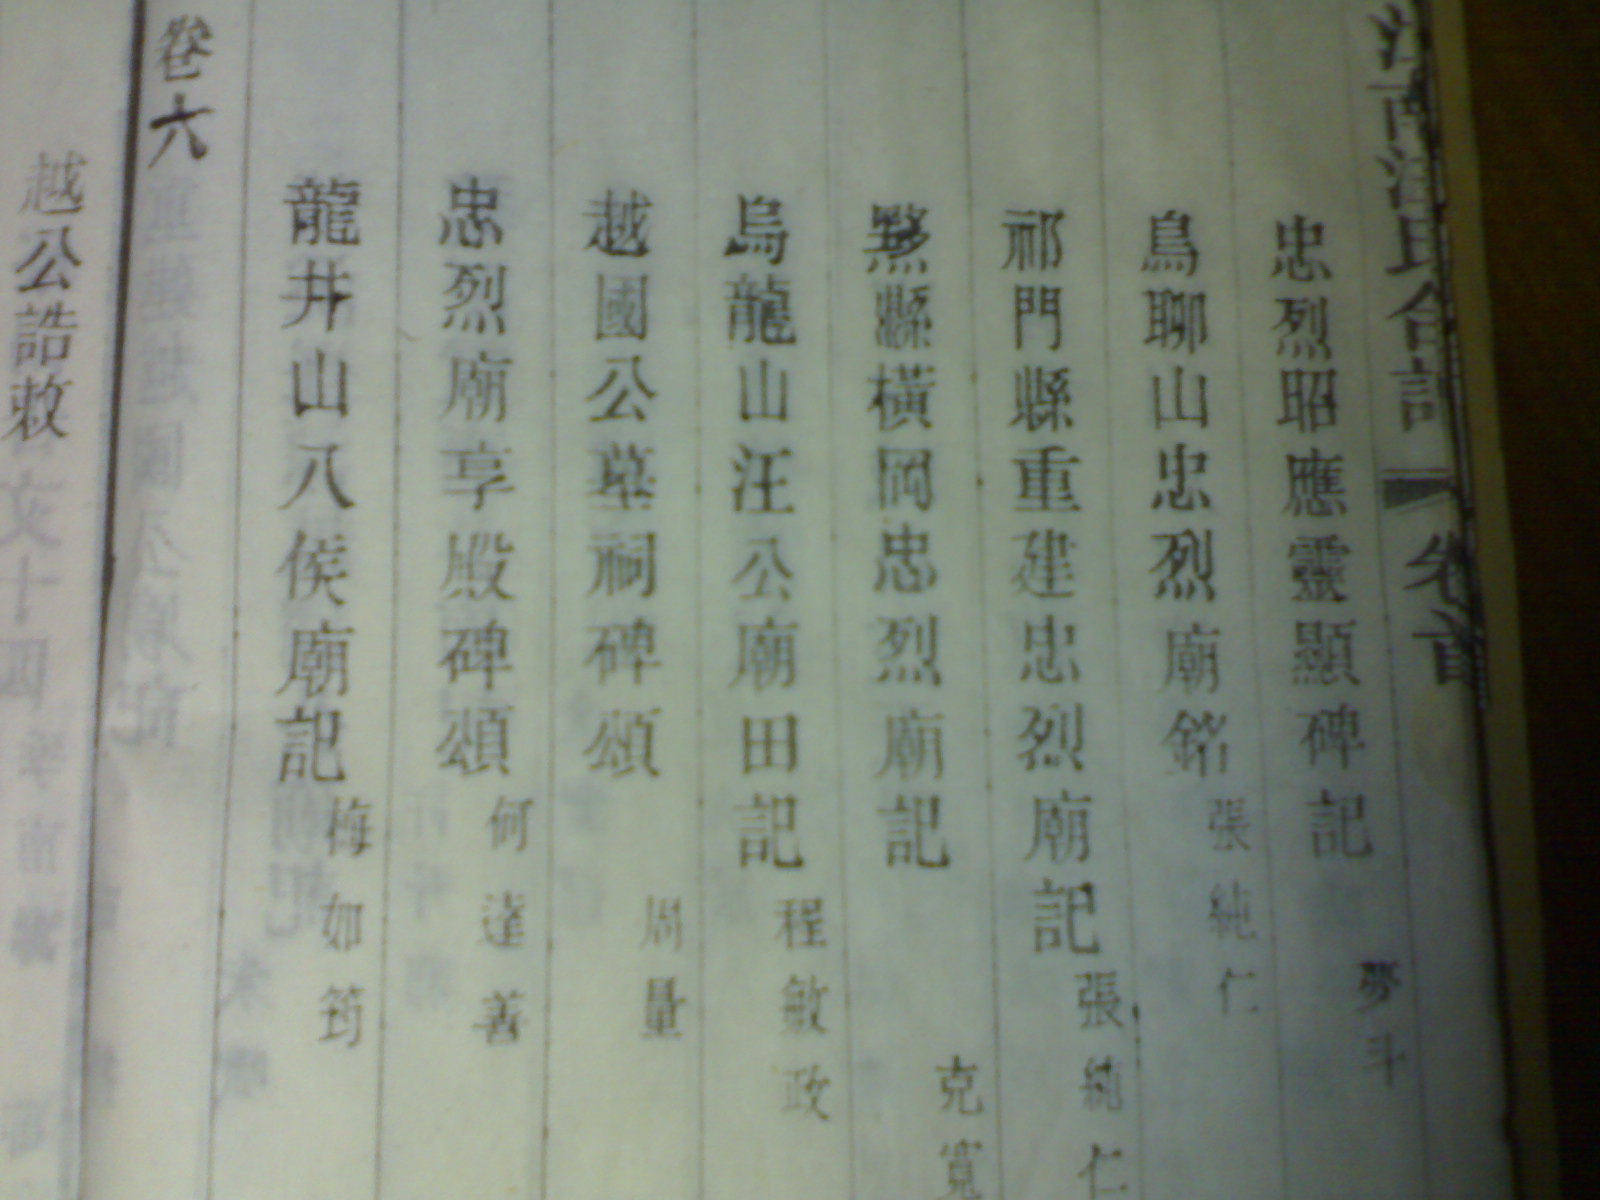 忠烈昭應靈顯碑記 夢斗
烏聊山忠烈廟銘 張純仁
祁門縣重建忠烈廟記 張純仁
黟縣橫岡忠烈廟記 克寬
烏龍山汪公廟田記 程敏政
越國公墓祠碑頌 周量
忠烈廟享殿碑頌 何達善
龍井山八侯廟記 梅如筠
卷六
越公誥敕